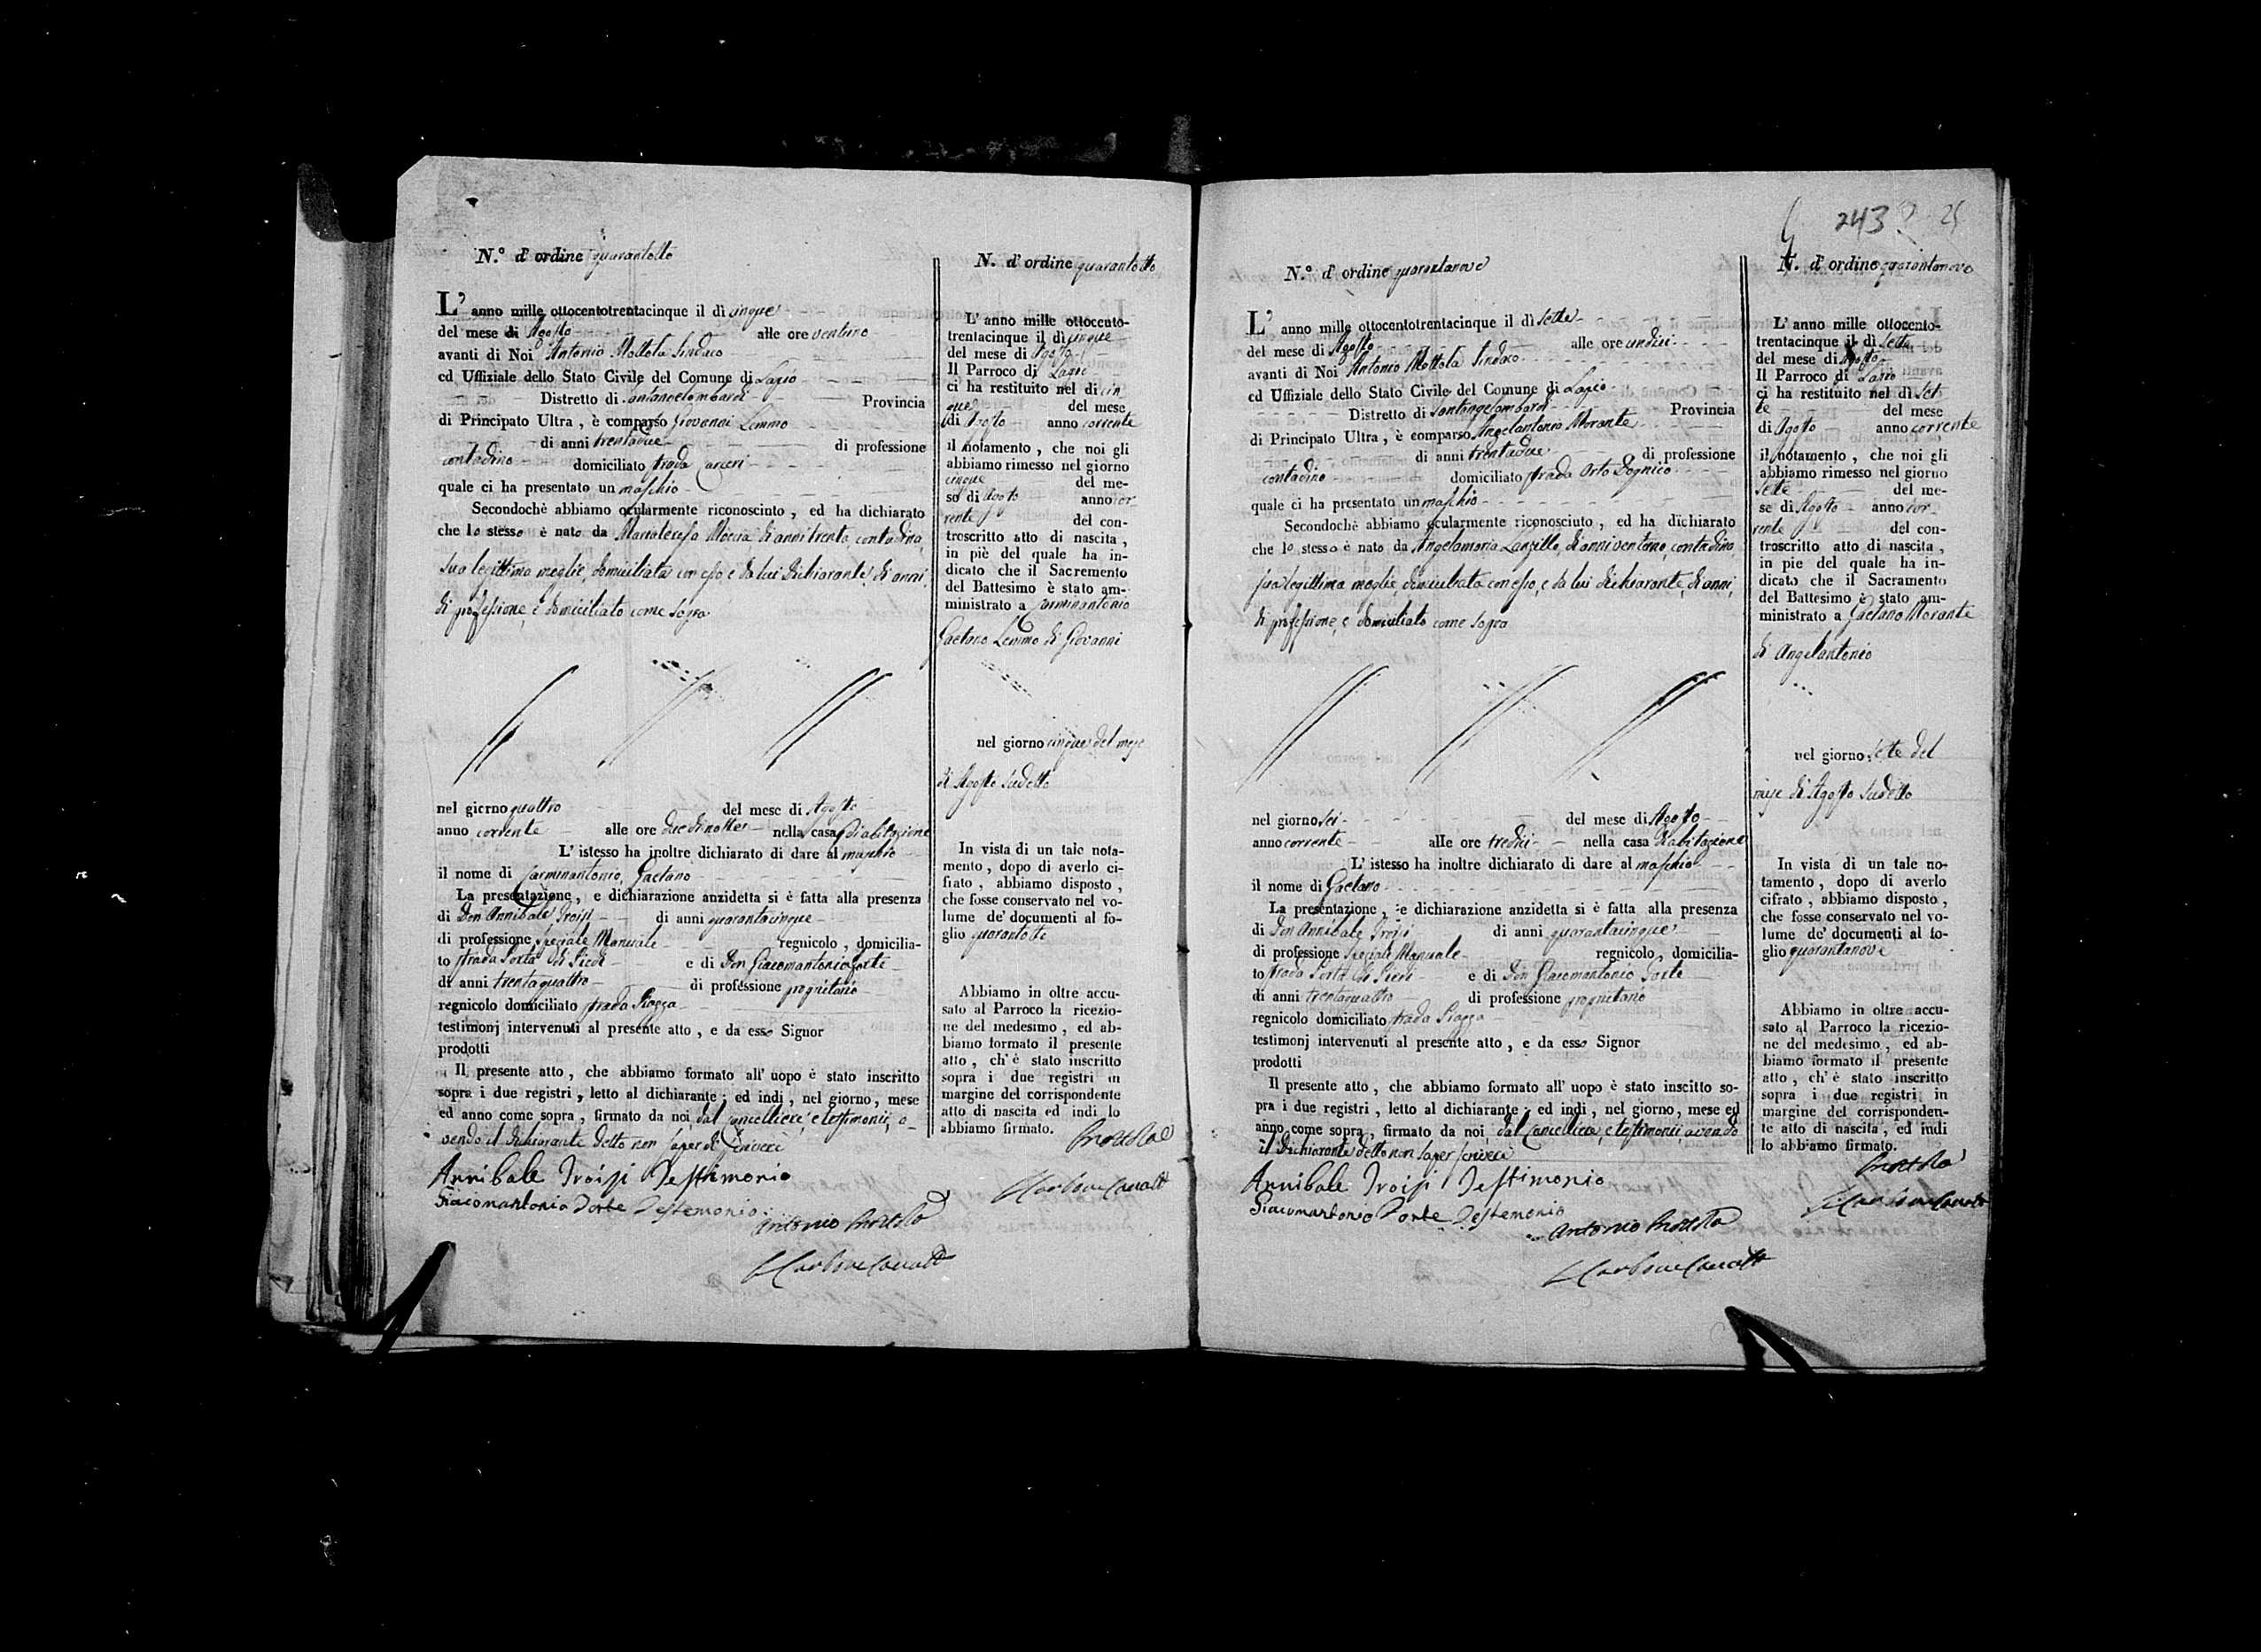 N.° d' ordine quarantotto
L' anno mille ottocentotrentacinque il dì cinque
del mese di Agosto alle ore ventuno
avanti di Noi Antonio Mottola Sindaco
ed Uffiziale dello Stato Civile del Comune di Lapio
Distretto di Santangelombardi Provincia
di Principato Ultra, è comparso Giovanni Lemmo
di anni trentadue di professione
contadino domiciliato strada Carceri
quale ci ha presentato un maschio
Secondochè abbiamo ocularmente riconosciuto, ed ha dichiarato
che lo stesso è nato da Mariateresa Moccia di anni trenta, contadina,
sua legittima moglie, domiciliata con esso, e da lui dichiarante, di anni,
di professione, e domiciliato come sopra
nel giorno quattro del mese di Agosto
anno corrente alle ore due di notte nella casa di abitazione
L' istesso ha inoltre dichiarato di dare al maschio
il nome di Carminantonio, Gaetano
La presentazione, e dichiarazione anzidetta si è fatta alla presenza
di Don Annibale Troisi di anni quarantacinque
di professione Speziale Manuale regnicolo, domicilia-
to strada Porta di Piedi e di Don Giacomantonio Forte
di anni trentaquattro di professione proprietario
regnicolo domiciliato strada Piazza
testimonj intervenuti al presente atto, e da esso Signor
prodotti
Il presente atto, che abbiamo formato all' uopo è stato inscritto
sopra i due registri, letto al dichiarante; ed indi, nel giorno, mese
ed anno come sopra, firmato da noi, dal Cancelliere, e testimonii, a-
vendo il dichiarante detto non saper di scrivere
Annibale Troisi Testimonio
Giacomantonio Forte Testemonio
Antonio Mottola
N. d' ordine quarantotto
L' anno mille ottocento-
trentacinque il dì cinque
del mese di Agosto
Il Parroco di Lapio
ci ha restituito nel dì cin
que del mese
di Agosto anno corrente
il notamento, che noi gli
abbiamo rimesso nel giorno
cinque del me-
se di Agosto anno cor-
rente del con-
troscritto atto di nascita,
in piè del quale ha in-
dicato che il Sacremento
del Battesimo è stato am-
ministrato a Carminantonio
Gaetano Lemmo di Giovanni
nel giorno cinque del mese
di Agosto sudetto
In vista di un tale nota-
mento, dopo di averlo ci-
frato, abbiamo disposto,
che fosse conservato nel vo-
lume de' documenti al fo-
glio quarantotto
Abbiamo in oltre accu-
sato al Parroco la ricezio-
ne del medesimo, ed ab-
biamo formato il presente
atto, ch' è stato inscritto
sopra i due registri in
margine del corrispondente
atto di nascita ed indi lo
abbiamo firmato.
Mottola
243
N.° d' ordine quarantanove
L' anno mille ottocentotrentacinque il dì sette
del mese di Agosto alle ore undici
avanti di Noi Antonio Mottola Sindaco
ed Uffiziale dello Stato Civile del Comune di Lapio
Distretto di Santangelombardi Provincia
di Principato Ultra, è comparso Angelantonio Morante
di anni trentadue di professione
contadino domiciliato strada Orto Dognico
quale ci ha presentato un maschio
Secondochè abbiamo ocularmente riconosciuto, ed ha dichiarato
che lo stesso è nato da Angelamaria Lanzillo, di anni ventuno, contadina
sua legittima moglie, domiciliata con esso, e da lui dichiarante, di anni,
di professione, e domiciliato come sopra
nel giorno sei del mese di Agosto
anno corrente alle ore tredici nella casa d'abitazione
L' istesso ha inoltre dichiarato di dare al maschio
il nome di Gaetano
La presentazione, e dichiarazione anzidetta si è fatta alla presenza
di Don Annibale Troisi di anni quarantacinque
di professione Speziale Manuale regnicolo, domicilia-
to strada Porta di Piedi e di Don Giacomantonio Forte
di anni trentaquattro di professione proprietario
regnicolo domiciliato strada Piazza
testimonj intervenuti al presente atto, e da esso Signor
prodotti
Il presente atto, che abbiamo formato all' uopo è stato inscitto so-
pra i due registri, letto al dichiarante; ed indi, nel giorno, mese ed
anno come sopra, firmato da noi, dal Cancelliere, e testimonii, avendo
il dichiarante detto non saper scrivere
Annibale Troisi Testimonio
Giacomantonio Forte Testemonio
Antonio Mottola
N. d' ordine quarantanove
L' anno mille ottocento-
trentacinque il dì sette
del mese di Agosto
Il Parroco di Lapio
ci ha restituito nel dì set
te del mese
di Agosto anno corrente
il notamento, che noi gli
abbiamo rimesso nel giorno
sette del me-
se di Agosto anno cor-
rente del con-
troscritto atto di nascita,
in pie del quale ha in-
dicato che il Sacramento
del Battesimo è stato am-
ministrato a Gaetano Morante
di Angelantonio
nel giorno sette del
mese di Agosto sudetto
In vista di un tale no-
tamento, dopo di averlo
cifrato, abbiamo disposto,
che fosse conservato nel vo-
lume de' documenti al fo-
glio quarantanove
Abbiamo in oltre accu-
sato al Parroco la ricezio-
ne del medesimo, ed ab-
biamo formato il presente
atto, ch' è stato inscritto
sopra i due registri in
margine del corrisponden-
te atto di nascita, ed indi
lo abbiamo firmato.
Mottola